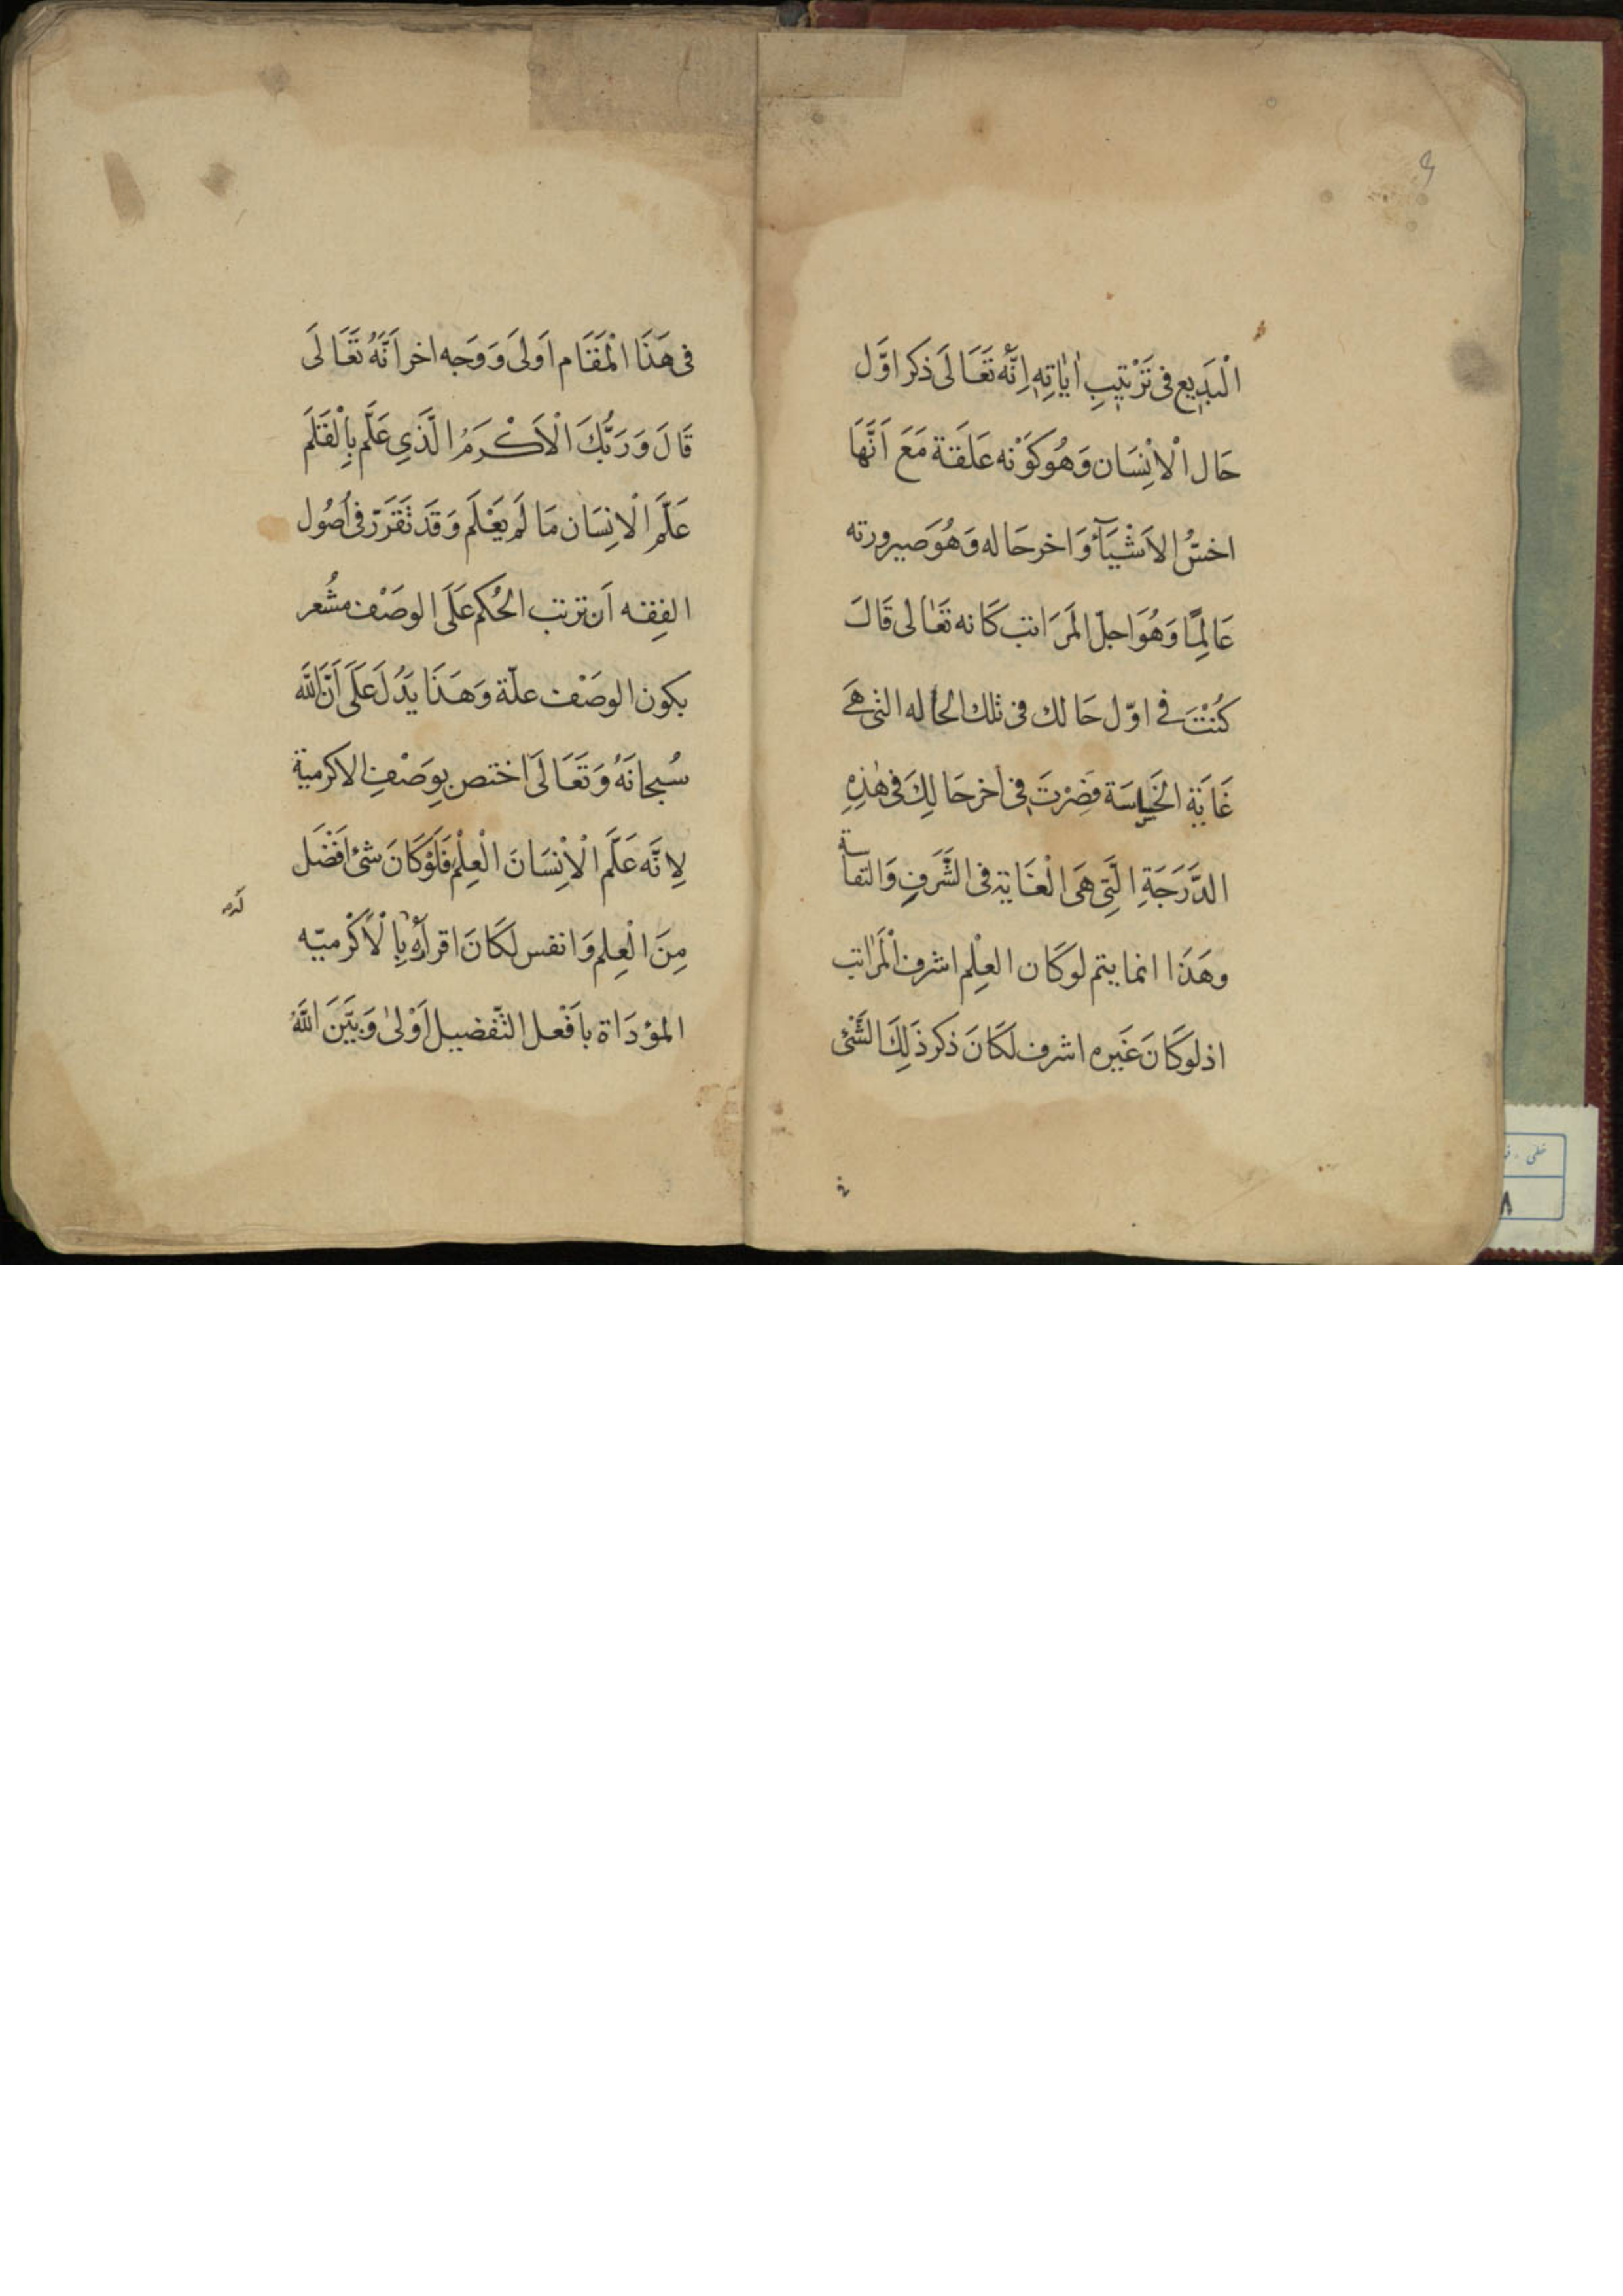 الْبَدِيع فى تَرْتيِبِ اٰيَاتِهِ اِنَّهُ تَعَالَى ذكر اوَّل
حَال الْاِنْسَان وَهُوَ كَوْنه عَلَقة مَعَ اَنَّهَا
اخسُّ الاَشْيَآءُ وَاخر حَاله وَهُوَ صيرورته
عَالِمًا وَهُوَ اجلّ المَرَاتب كَانه تَعَالى قَالَ
كُنْتَ فى اوّل حَالك فى تلك الحاله التى هَى
غَايَة الخَساسَة فصِرْتَ فى اخر حَالِكَ فى هٰذِهِ
الدَّرَجَةِ الَّتِى هَى الْغَايَة فى الشَّرَفِ وَالنفاسة
وهَذَا انما يتم لو كَان العِلْم اشرف الْمَرَاتب
اذ لو كَانَ غَيره اشرف لكَانَ ذكر ذَلِكَ الشَّئ
فى هَذَا الْمَقَام اَولىَ وَوَجه اخر اَنَّهُ تَعَالَى
قَالَ وَرَبُّكَ الْاَكْرَمُ الَّذَى عَلَّم بِالْقَلَم
عَلَّمَ الْاِنسَان مَا لَم يَعْلَم وَقَد تَقَرَرّ فى اُصُول
الفِقه اَن ترتب الحُكم عَلَى الوصَف مشُعر
بكون الوصَف علّة وَهَذَا يَدُلّ عَلَى اَنَّ اللَّه
سُبحانَهُ وَتَعَالَى اختص بِوصَفِ الاكرمية
لِانَّه عَلَّم الْاِنْسَانَ الْعِلْم فَلَوْ كَانَ شئ اَفْضَل
مِنَ الْعِلم وَانفس لكَانَ اقرانه بِالْاَكْرميّه
المؤدَاة بافَعل التّفضيل اَوْلىٰ وَبَيَّنَ اللَّهُ